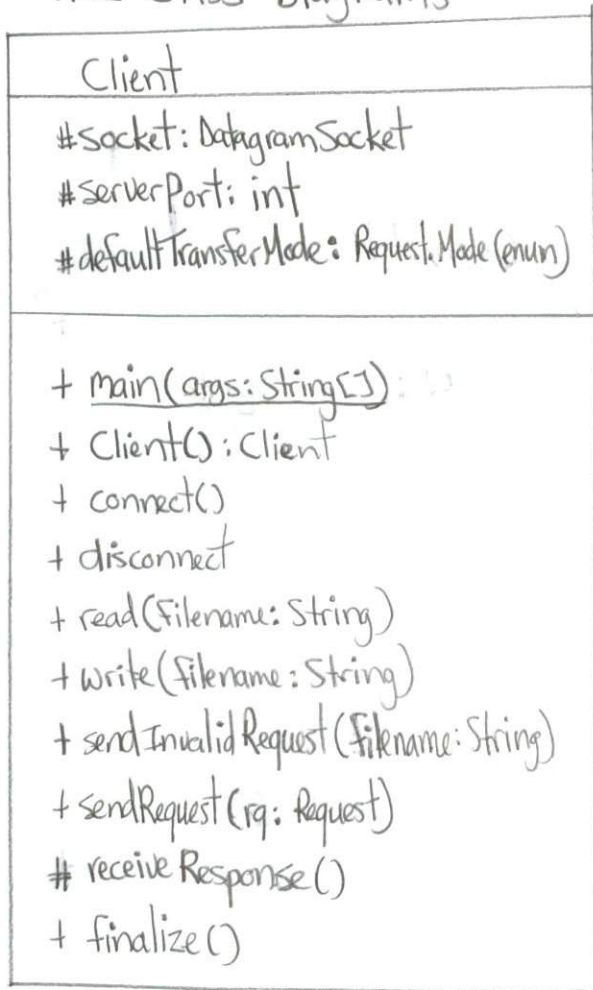 Class Diagrams
Client
#socket: DatagramSocket
#serverPort: int
#defaultTransferMode: Request.Mode (enum)
+ main(args: String[])
+ Client(): Client
+ connect()
+ disconnect
+ read(filename: String)
+ write(filename: String)
+ sendInvalidRequest(filename: String)
+ sendRequest(rq: Request)
# receiveResponse()
+ finalize()